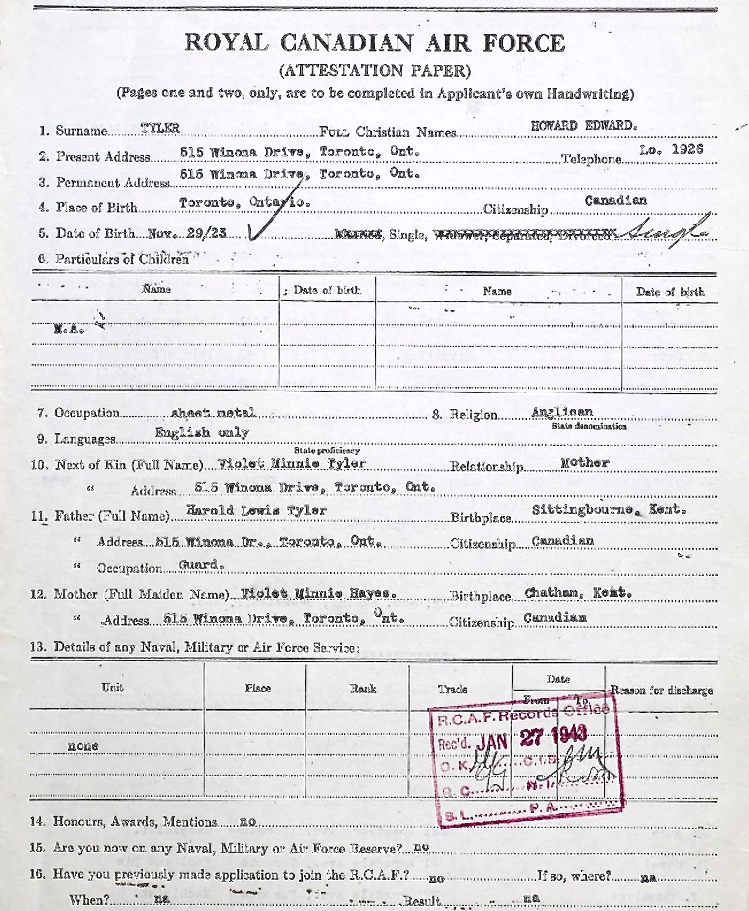 ROYAL CANADIAN AIR FORCE
(ATTESTATION PAPER)
(Pages one and two, only, are to be completed in Applicant's own Handwriting)
1. Surname TYLER Full Christian Names HOWARD EDWARD.
2. Present Address 515 Winona Drive, Toronto, Ont. Telephone Lo. 1926
3. Permanent Address 515 Winona Drive, Toronto, Ont.
4. Place of Birth Toronto, Ontario. Citizenship Canadian
5. Date of Birth Nov. 29/23 Married, Single, Widower, Separated, Divorced Single
6. Particulars of Children
Name Date of birth Name Date of birth
N.A.
7. Occupation sheet metal 8. Religion Anglican
State denomination
9. Languages English only
State proficiency
10. Next of Kin (Full Name) Violet Minnie Tyler Relationship Mother
" Address 515 Winona Drive, Toronto, Ont.
11. Father (Full Name) Harold Lewis Tyler Birthplace Sittingbourne, Kent.
" Address 515 Winona Dr., Toronto, Ont. Citizenship Canadian
" Occupation Guard.
12. Mother (Full Maiden Name) Violet Minnie Hayes. Birthplace Chatham, Kent.
" Address 515 Winona Drive, Toronto, Ont. Citizenship Canadian
13. Details of any Naval, Military or Air Force Service:
Unit Place Rank Trade Date Reason for discharge
From To
none
R.C.A.F. Records Office
Rec'd. JAN 27 1943
O.K. C.I.S.
R.C. N.I.
S.L. P.A.
14. Honours, Awards, Mentions no
15. Are you now on any Naval, Military or Air Force Reserve? no
16. Have you previously made application to join the R.C.A.F.? no If so, where? na
When? na Result na